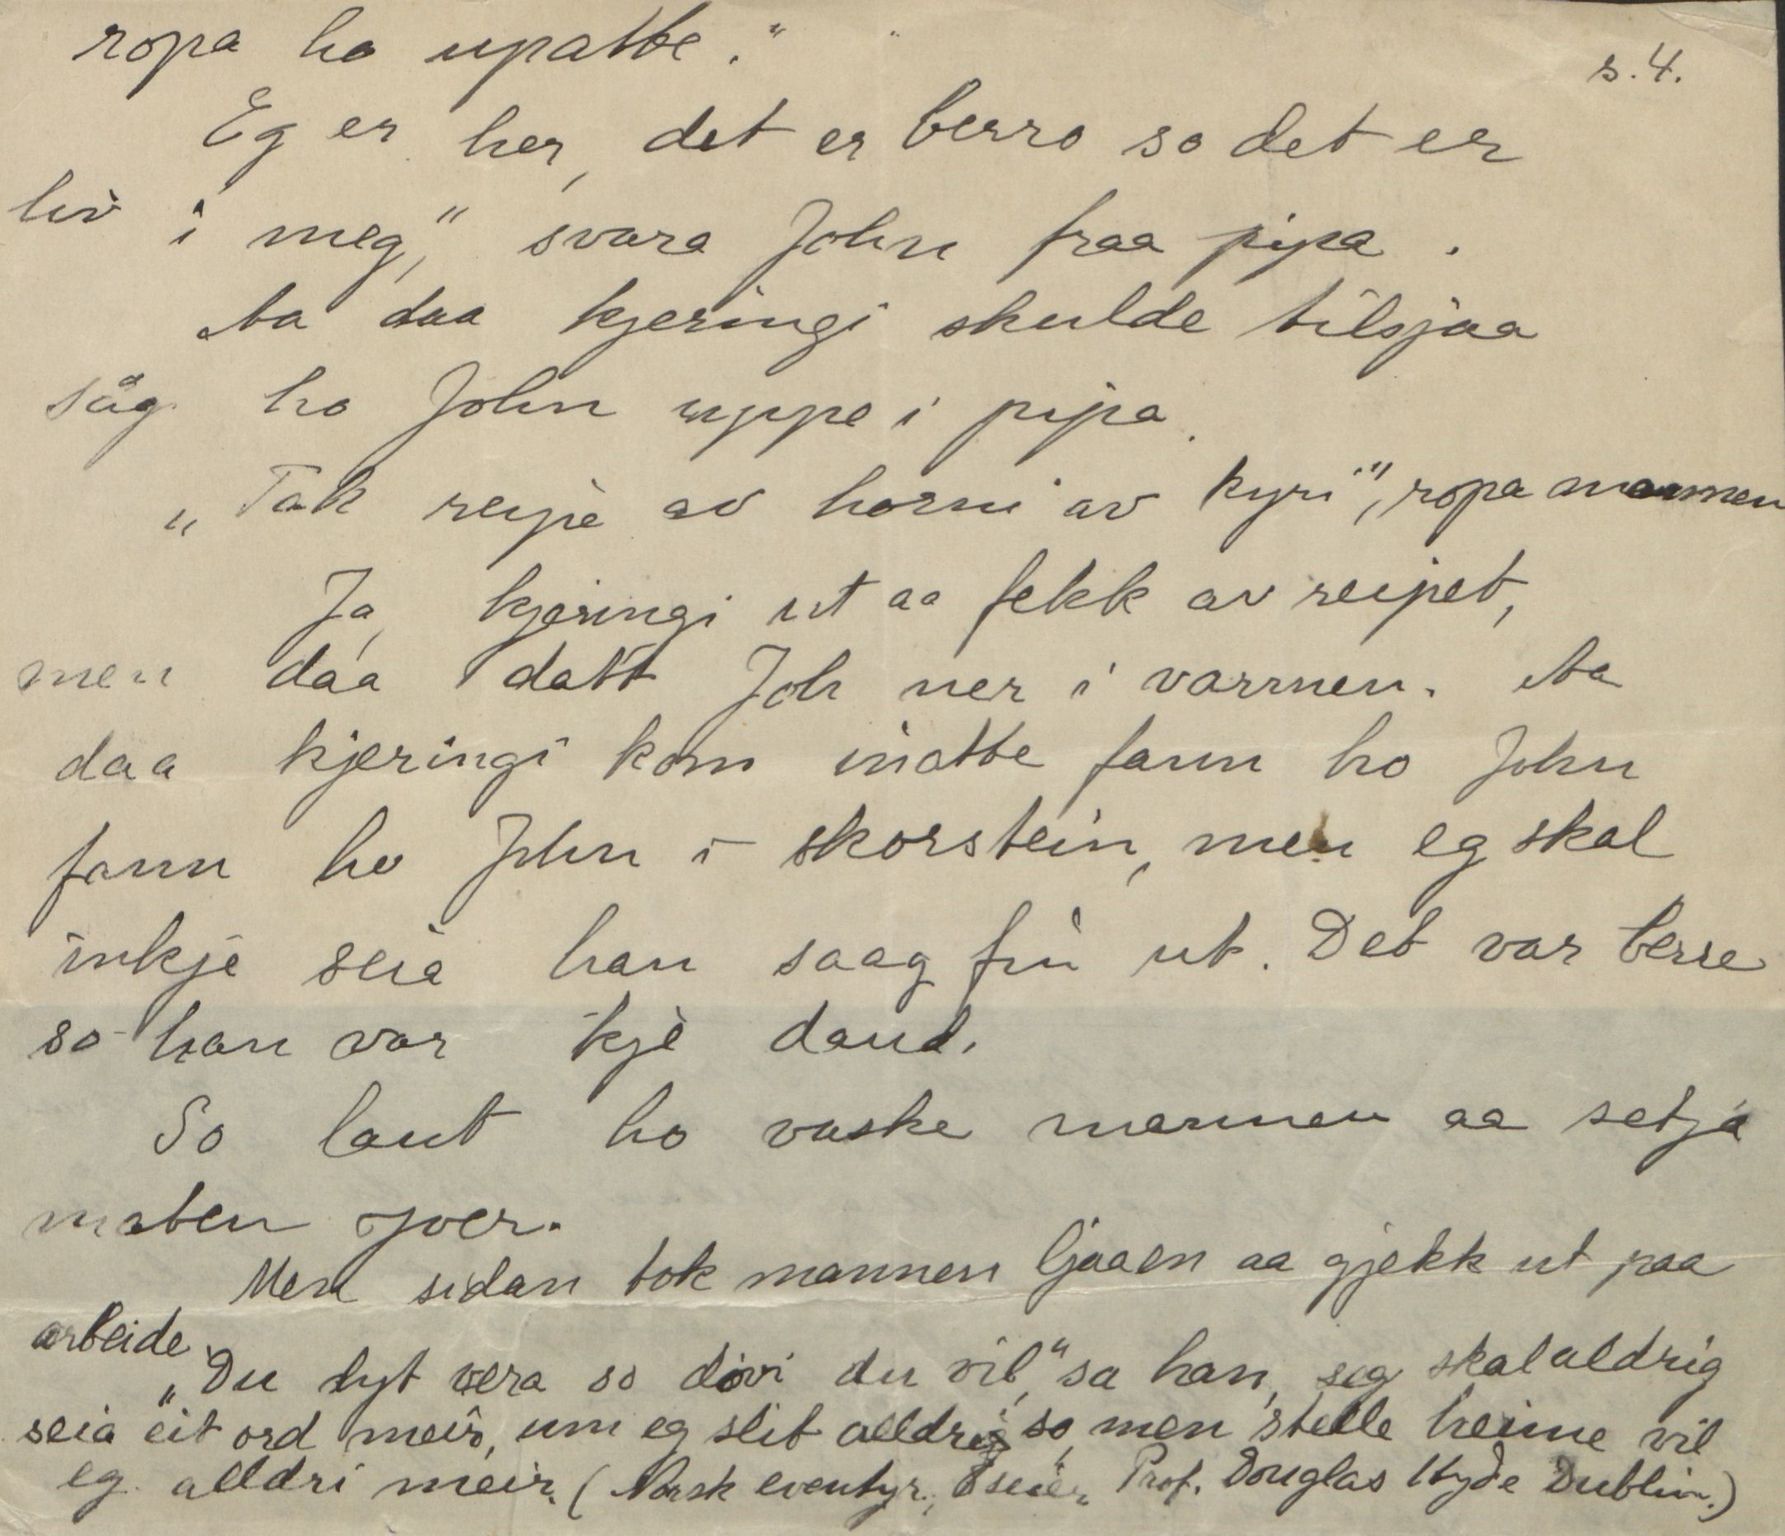 ropa ho upatte."
s. 4.
Eg er her, det er berro so det er
liv i meg," svara John fraa pipa.
Aa daa kjeringi skulde tilsjaa
såg ho John uppe i pipa.
"Tak reipe av horni av kyri", ropa mannen
Ja, kjeringi ut aa fekk av reipet,
men daa datt Joh ner i varmen. Aa
daa kjeringi kom inatte fann ho John
fann ho John i skorstein, men eg skal
inkje seia han saag fin ut. Det var berre
so han var kje daud.
So laut ho vaske mannen aa setja
maten yver.
Men sidan tok mannen ljaaen aa gjekk ut paa
arbeide.
"Du lyt vera so du vil," sa han, eg skal aldrig
seia eit ord meir, um eg slit alldrig so, men stelle heime vil
eg alldri meir. (Norsk eventyr, Prof. Douglas Hyde Dublin.)